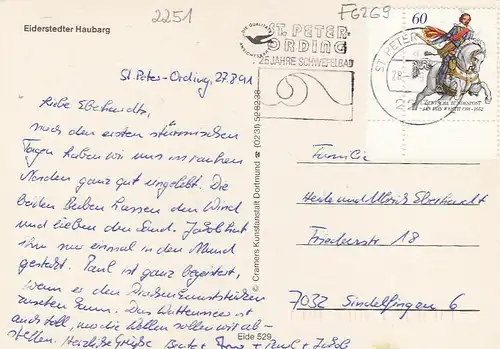 2251
F6269
Eiderstedter Haubarg
ST. PETER-
ORDING
25 JAHRE SCHWEFELBAD
60
ST. PETER
DEUTSCHE BUNDESPOST
St. Peter-Ording, 27.8.91
Liebe Eberhardts,
nach den ersten stürmischen
Tagen haben wir uns im rauhen
Norden ganz gut eingelebt. Die
beiden Buben hassen den Wind
und lieben den Sand. Jakob hat
ihn nur einmal in den Mund
gesteckt. Paul ist ganz begeistert,
wenn er den Drachenkunststücken
zusehen kann. Das Wattenmeer ist
auch toll, wo die Wellen sollen wir ab-
stellen. Herzliche Grüße Beate + + Paul + Jakob
© Cramers Kunstanstalt Dortmund ☎ (0231) 528238
Eide 529
Familie
Heide und Ulrich Eberhardt
Friedenstr. 18
7032 Sindelfingen 6